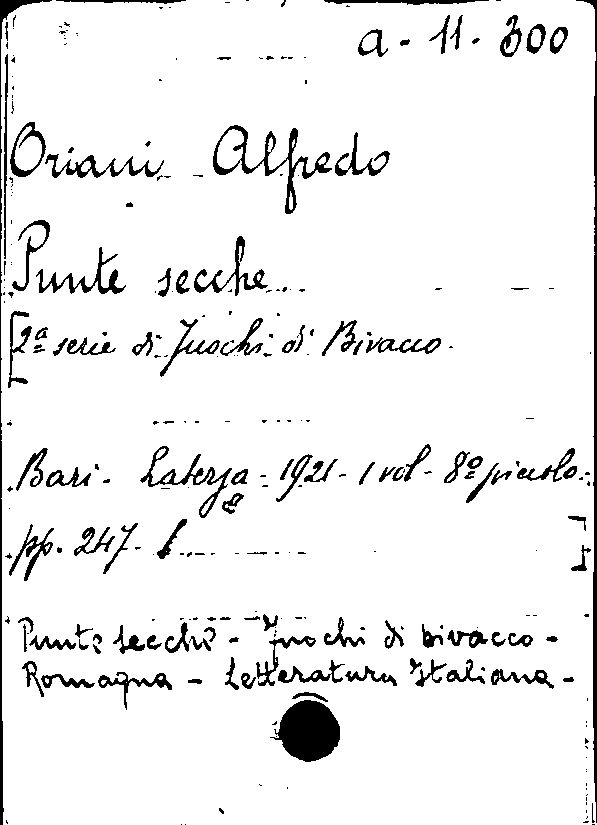 a - 11 - 300
Oriani Alfredo
Punte secche
[2ª serie di Fuochi di Bivacco.
Bari - Laterza - 1921 - 1 vol - 8º piccolo.
pp. 247. ]
Punte secche - Fuochi di bivacco -
Romagna - Letteratura Italiana -